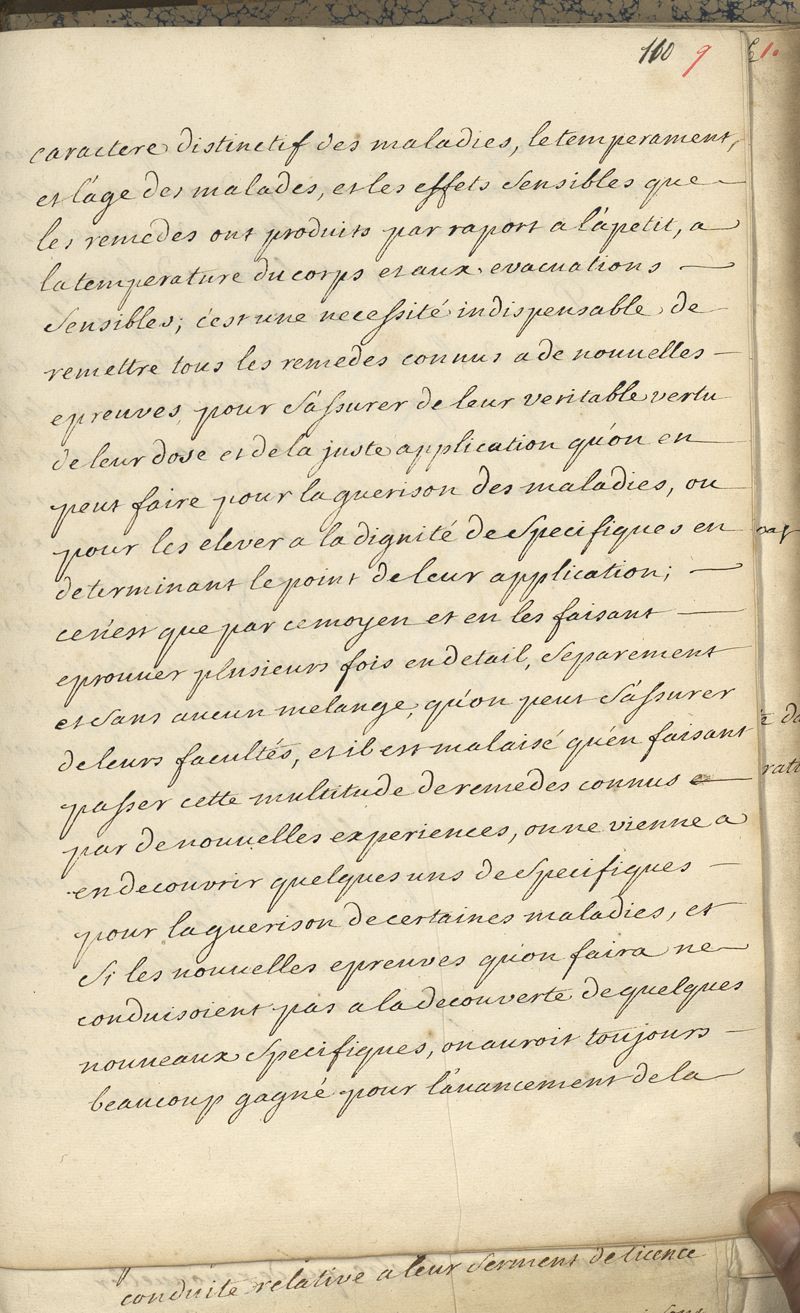 100 9
caractere distinctif des maladies, le temperament,
et l'age des malades, et les effets sensibles que
les remedes ont produits par raport a l'apetit, a
la temperature du corps et aux evacuations
sensibles; c'est une necessité indispensable de
remettre tous les remedes connus a de nouuelles
epreuves, pour s'assurer de leur veritable vertu
de leur dose et de la juste application qu'on en
peut faire pour la guerison des maladies, ou
pour les elever a la dignité de specifiques en
determinant le point de leur application;
ce n'est que par ce moyen et en les faisant
eprouuer plusieurs fois en detail, separement
et sans aucun melange, qu'on peut s'assurer
de leurs facultés, et il est malaisé qu'en faisant
passer cette multitude de remedes connus
par de nouuelles experiences, on ne vienne a
en decouvrir quelques uns de specifiques
pour la guerison de certaines maladies, et
si les nouuelles epreuves qu'on faira ne
conduisoient pas a la decouverte de quelques
nouueaux specifiques, on auroit toujours
beaucoup gagné pour l'auancement de la
conduite relative a leur serment de licence